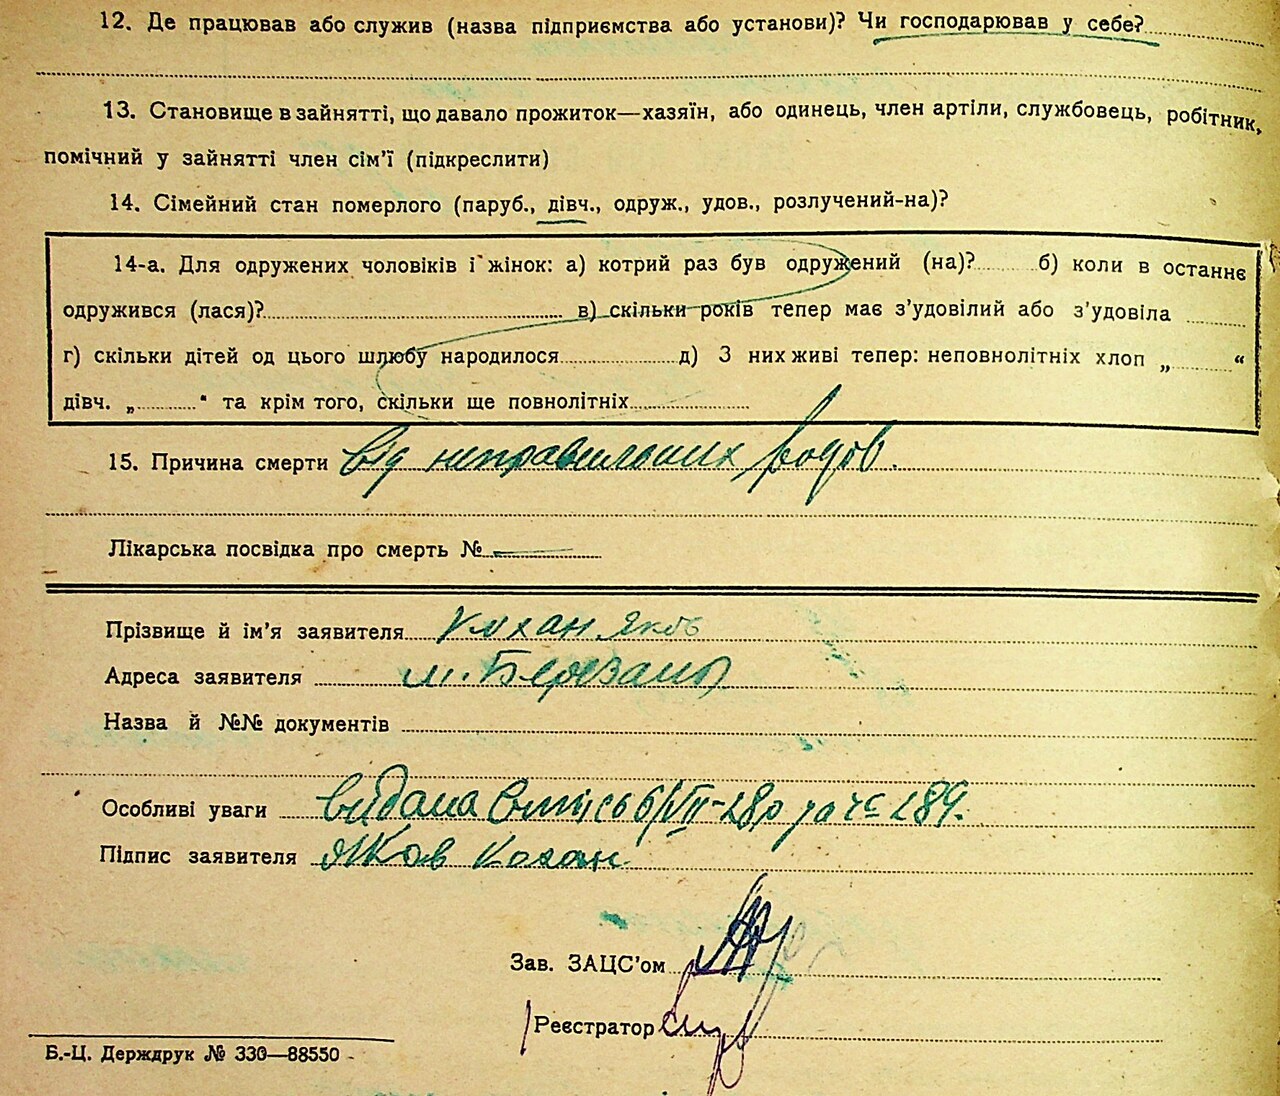 12. Де працював або служив (назва підприємства або установи)? Чи господарював у себе?
13. Становище в зайнятті, що давало прожиток—хазяїн, або одинець, член артіли, службовець, робітник,
помічний у зайнятті член сім’ї (підкреслити)
14. Сімейний стан померлого (паруб., дівч., одруж., удов., розлучений-на)?
14-а. Для одружених чоловіків і жінок: а) котрий раз був одружений (на)? б) коли в останнє
одружився (лася)? в) скільки років тепер має з’удовілий або з’удовіла
г) скільки дітей од цього шлюбу народилося д) З них живі тепер: неповнолітніх хлоп „ “
дівч. „ “ та крім того, скільки ще повнолітніх
15. Причина смерти від неправильних родов.
Лікарська посвідка про смерть № —
Прізвище й ім’я заявителя Кохан Яков
Адреса заявителя м. Березань
Назва й №№ документів
Особливі уваги видана 6/VII-28р за 289.
Підпис заявителя Яков Кохан
Зав. ЗАЦС’ом
Реєстратор
Б.-Ц. Держдрук № 330—88550